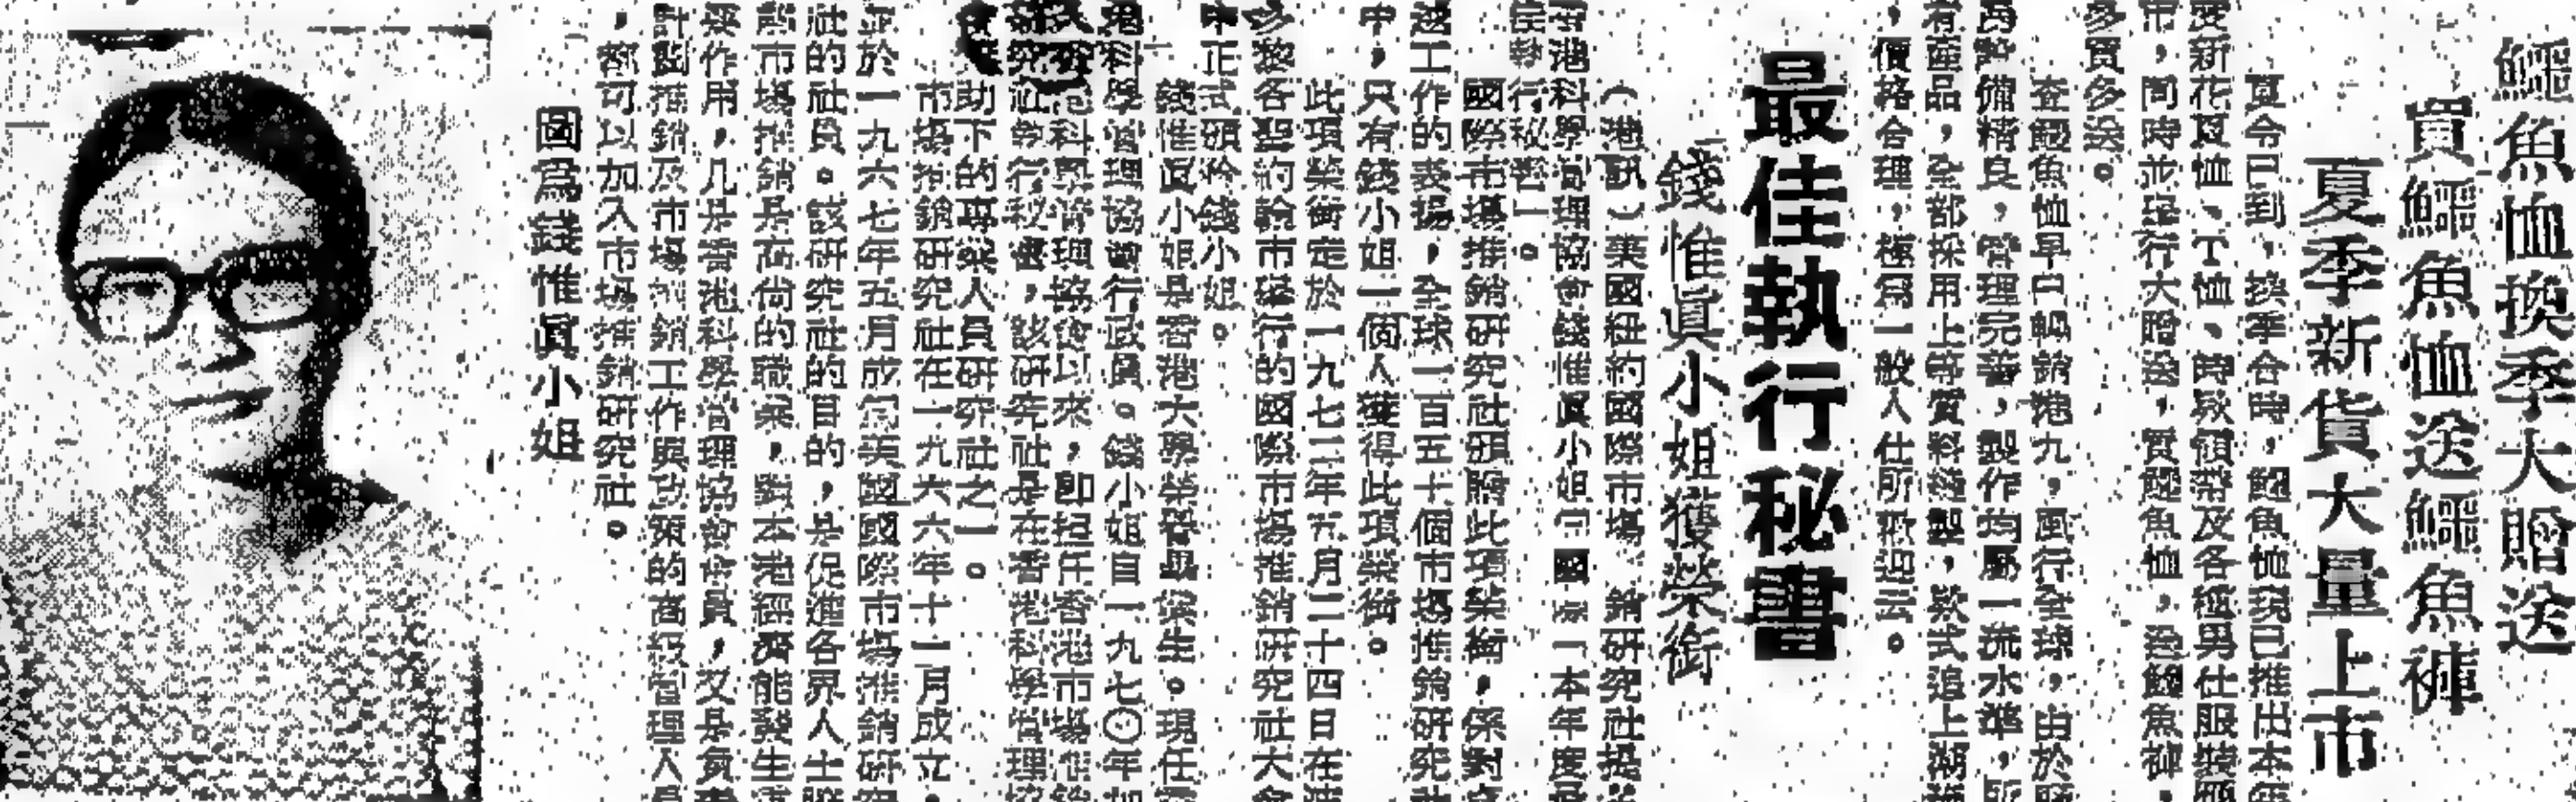 鱷魚恤換季大贈送
買鱷魚恤送鱷魚褲
夏季新貨大量上市
夏令已到，換季合時，鱷魚恤現已推出本年
度新花夏恤、T恤、時款領帶及各種男仕服裝
市，同時並舉行大贈送，買鱷魚恤，送鱷魚褲，
多買多送。
查鱷魚恤早已暢銷港九，風行全球，由於
設備精良，管理完善，製作均屬一流水準，所
有產品，全部採用上等質料縫製，款式追上潮
，價格合理，極為一般人仕所歡迎云。
最佳執行秘書
錢惟眞小姐獲榮銜
（港訊）美國紐約國際市場推銷研究社提
香港科學管理協會錢惟眞小姐 國 本年度最
佳執行秘書」。
國際市場推銷研究社頒贈此項榮銜，係對
越工作的表揚，全球一百五十個市場推銷研究社
中，只有錢小姐一個人獲得此項榮銜。
此項榮銜是於一九七二年五月二十四日在
多黎各聖約翰市舉行的國際市場推銷研究社大會
中正式頒給錢小姐。
錢惟眞小姐是香港大學榮譽畢業生。現任
港科學管理協會行政員。錢小姐自一九七〇年加
科學管理協會以來，即担任香港市場推銷
研究社執行秘書，該研究社是在香港科學管理協
助下的專業人員研究社之一。
市場推銷研究社在一九六六年十一月成立，
並於一九六七年五月成為美國國際市場推銷研究
社的社員。該研究社的目的，是促進各界人士瞭
解市場推銷是高尚的職業，對本港經濟能發生重
要作用，凡是香港科學管理協會會員，又是負責
計劃推銷及市場推銷工作與政策的高級管理人員
，都可以加入市場推銷研究社。
圖為錢惟眞小姐